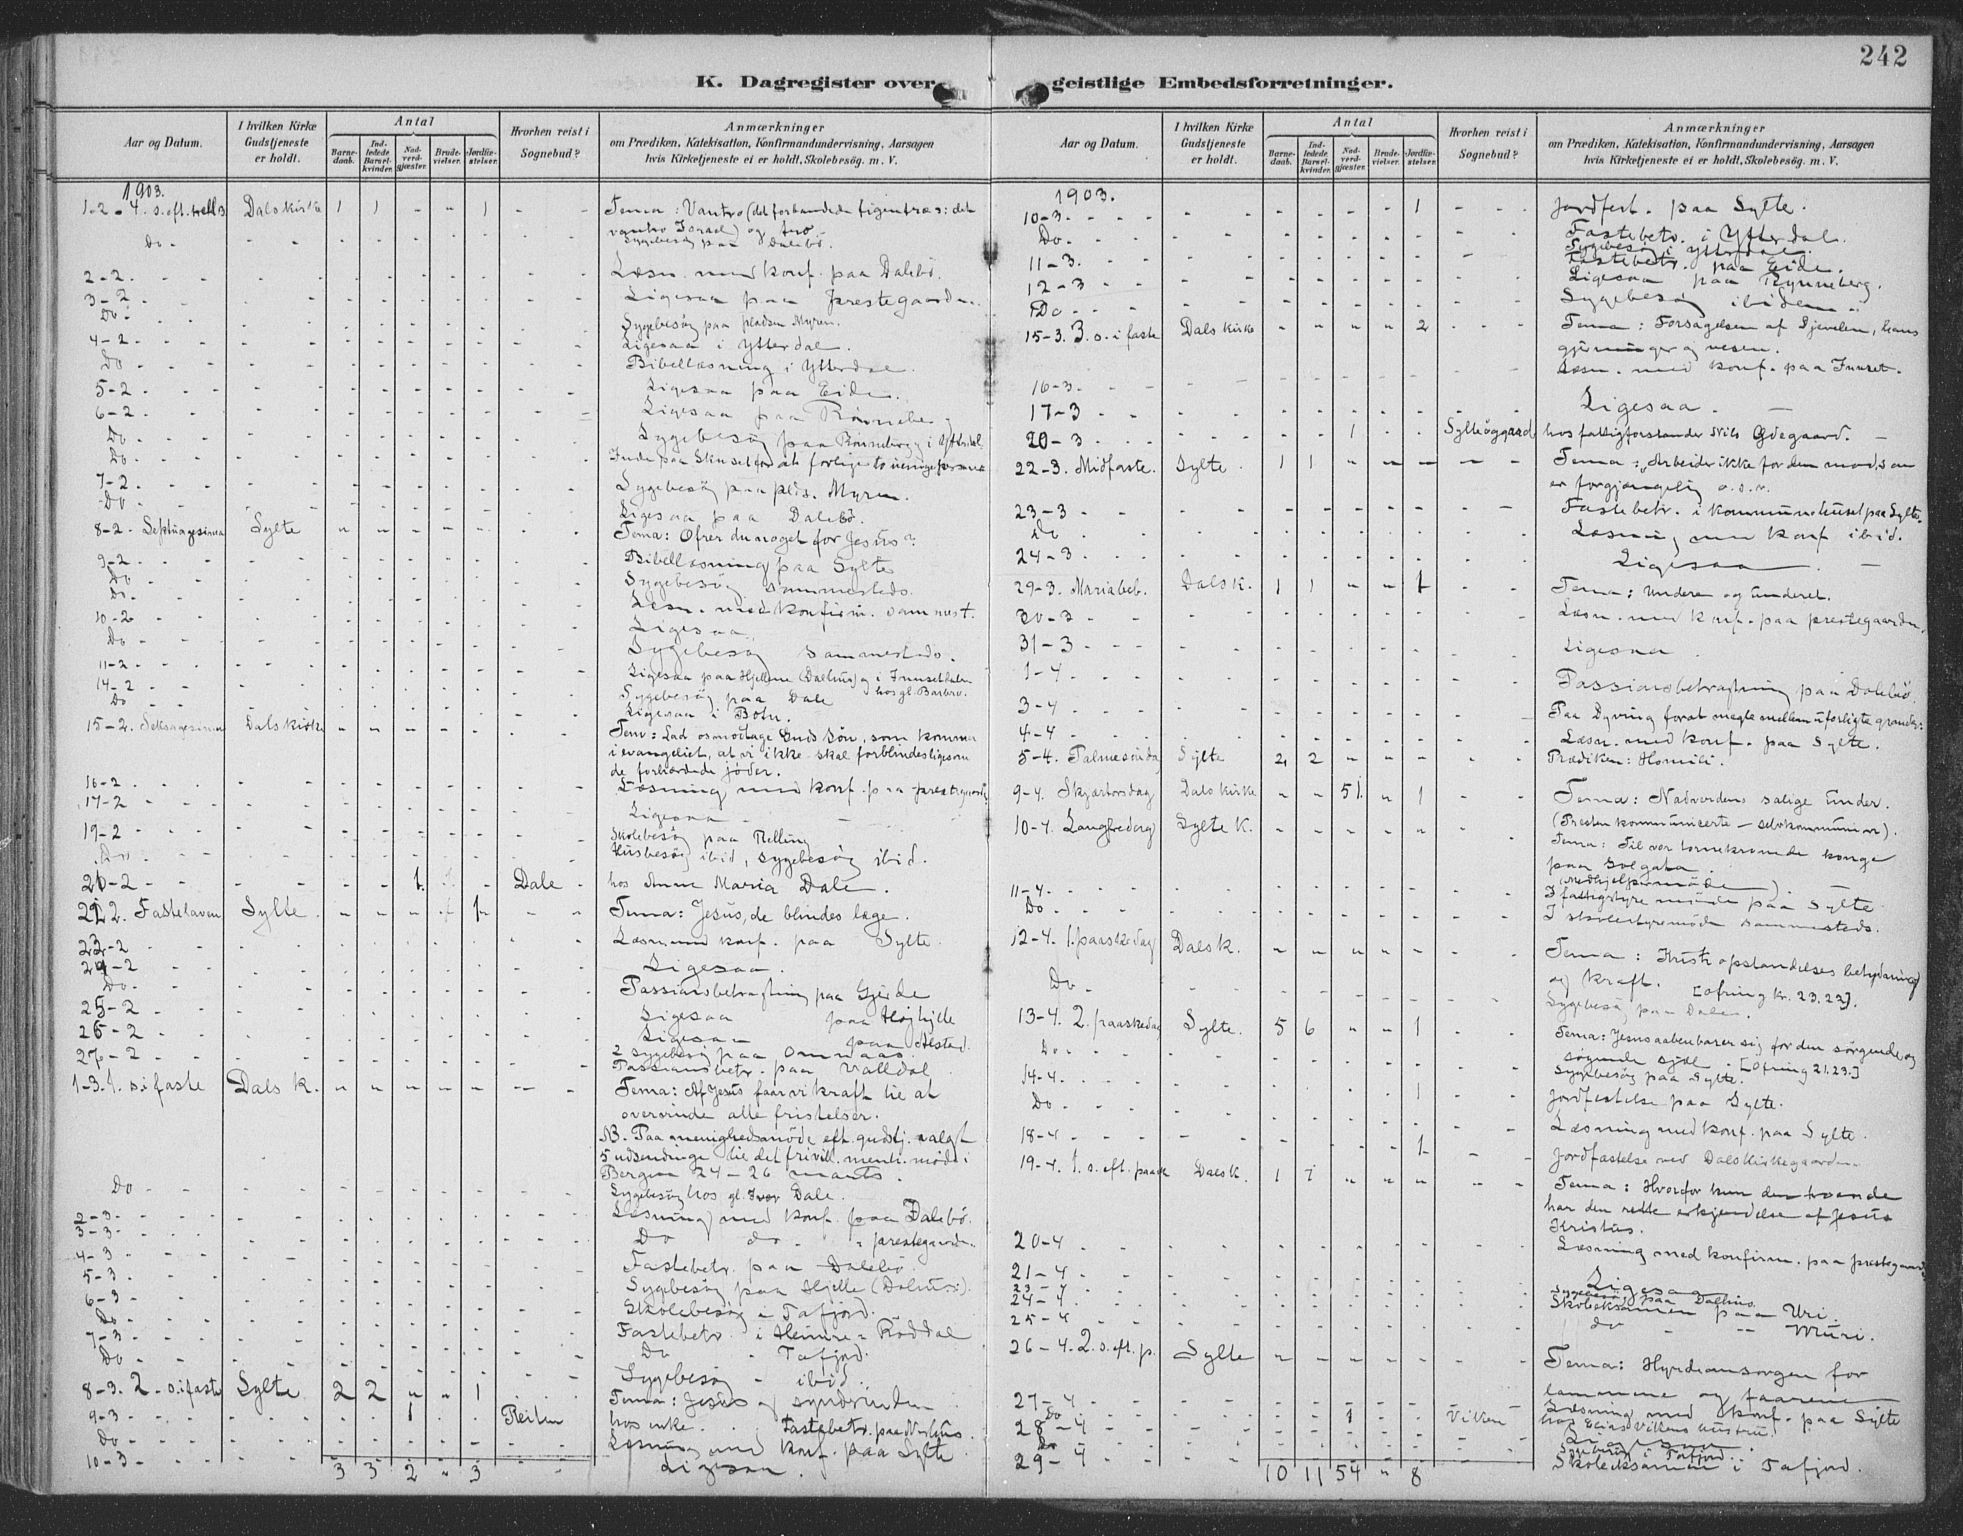 242
K. Dagregister over geistlige Embedsforretninger.
Aar og Datum.
I hvilken Kirke Gudstjeneste er holdt.
Antal
Barnedaab.
Indledede Barselkvinder.
Nadverdgjæster.
Brudevielser.
Jordfæstelser.
Hvorhen reist i Sognebud?
Anmærkninger
om Prædiken, Katekisation, Konfirmandundervisning, Aarsagen
hvis Kirketjeneste ei er holdt, Skolebesög. m. V.
1903.
1-2 - 4. s. eft. Dals kirke 1 1 - - 1 - - Tema: Vantro (det forbandede figentræs: det
vantro Israel) og tro
Do - Sygebesög paa Dalebö.
2-2 - Læsn. med konf. paa Dalebö.
3-2 - Ligesaa paa Prestegaarden.
Do - Sygebesög paa pladsen Myren.
4-2 - Ligesaa i Ytterdal.
Do - Bibellæsning i Ytterdal.
5-2 - Ligesaa paa Eide.
6-2 - Ligesaa paa
Do - Sygebesög paa Rönneberg i Ytterdal
Do - Inde paa for at forlige to uenige
7-2 - Sygebesög paa plds. Myren.
Do - Ligesaa paa Dalebö.
8-2 - Septuagesima Sylte - Tema: Ofrer du noget for Jesus?
9-2 - Bibellæsning paa Sylte
Do - Sygebesög sammesteds.
Do - Læsn. med konfirm. sammest.
10-2 - Ligesaa.
Do - Sygebesög sammesteds.
11-2 - Ligesaa paa Hjellene (Dalhus) og i
hos gl. Barbro.
14-2 - Sygebesög paa Dale
Do - Ligesaa i Botn.
15-2. Seksagesima Dals kirke - Tema: Lad os modtage Guds Sön, som kommer
i evangeliet, at vi ikke skal forblindes ligesom
de forhærdede jöder.
16-2 - Læsning med konf. paa prestegaarden
17-2 - Ligesaa
19-2 - Skolebesög paa Relling
Do - Husbesög ibid, sygebesög ibid.
20-2 - 1. - Dale - hos Anne Maria Dale.
22-2. Fastelaven Sylte - 1 - Tema: Jesus, de blindes læge.
23-2 - Læsn. med konf. paa Sylte.
24-2 - Ligesaa.
Do - Passionsbetragtning paa Gjerde
25-2 - Ligesaa paa Höghjelle
26-2 - Ligesaa paa Alstad.
27-2 - 2 sygebesög paa Omnaas.
Passionsbetr. paa Valldal.
1-3. 1. s. i faste Dals k. - Tema: Af Jesus faar vi kraft til at
overvinde alle fristelser.
NB. Paa menighedsmöde eft. gudstj. valgt
5 udsendinge til det frivill. menh. möde i
Bergen 24-26 marts.
Do - Sygebesög hos gl. Iver Dale.
2-3 - Læsning med konf. paa Dalebö.
3-3 - Do do - prestegaarden.
4-3 - Fastebetr. paa Dalebö.
5-3 - Sygebesög paa Hjelle (Dalhus).
6-3 - Skolebesög i Tafjord.
Do - Fastebetr. i Heimre Röddal
7-3 - Do - Tafjord.
Do - Sygebesög - ibid.
8-3. 2. s. i faste Sylte 2 2 - - 1 - Tema: Jesus og synderinden
9-3 - 1 - Reiten hos enke. Fastebetr. paa
Do - Læsning med konf. paa Sylte
10-3 - Ligesaa.
3 3 2 - 3
Aar og Datum.
I hvilken Kirke Gudstjeneste er holdt.
Antal
Barnedaab.
Indledede Barselkvinder.
Nadverdgjæster.
Brudevielser.
Jordfæstelser.
Hvorhen reist i Sognebud?
Anmærkninger
om Prædiken, Katekisation, Konfirmandundervisning, Aarsagen
hvis Kirketjeneste ei er holdt, Skolebesög. m. V.
1903.
10-3. - 1 - Jordfest. paa Sylte.
Do. - Fastebetr. i Ytterdal.
Sygebesög i Ytterdal.
11-3. - Fastebetr. paa Eide.
12-3 - Ligesaa paa Rynneberg.
Do - Sygebesög ibidem
15-3. 3. s. i faste Dals kirke - 2 - Tema: Forsagelsen af Djevelen, hans
gjerninger og væsen.
16-3. - Læsn. med konf. paa
17-3 - Ligesaa.
20-3 - 1 - hos fattigforstander Nils Ödegaard.
22-3. Midfaste. Sylte. 1 1 - Tema: "Arbeider ikke for den mad, som
er forgjængelig o.s.v.
23-3 - Fastebetr. i kommunehuset paa Sylte.
Do - Læsning med konf. ibid.
24-3 - Ligesaa.
29-3. Mariabeb. Dals k. 1 1 - - 1 - Tema: Underen og underet.
30-3 - Læsn. med konf. paa prestegaarden.
31-3 - Ligesaa.
1-4 - Passionsbetragtning paa Dalebö
3-4 - Paa Dyring forat megle mellem uforligte
4-4 - Læsn. med konf. paa Sylte.
5-4. Palmesöndag Sylte 2 2 - Prædiken: Homili.
9-4. Skjærtorsdag Dals kirke - - 51. - 1 - Tema: Nadverdens salige under.
(Presten kommunicerte - selvkommunion).
10-4. Langfredag Sylte K. - Tema: Til vor tornekronede konge
paa Golgata.
11-4. - I fattigstyremöde paa Sylte
Do. - I skolestyremöde sammesteds.
12-4. 1. paaskedag Dals k. - Tema: Kristi opstandelses betydning
og kraft. [Ofring kr. 23.22].
Do. - Sygebesög paa Dalen.
13-4. 2. paaskedag Sylte. 5 6 - - 1 - Tema: Jesus aabenbarer sig for den sörgende og
sögende sjæl. [Ofring 21.23.]
Do - Sygebesög paa Sylte.
14-4. - 1 - Jordfestelse paa Sylte.
Do - Læsning med konf. paa Sylte.
18-4 - 1 - Jordfæstelse ved Dals kirkegaarden
19-4. 1. s. eft. paaske Dals k. 1 1 - Tema: Hvorfor kun den troende
har den rette erkjendelse af Jesus
Kristus.
20-4 - Læsning med konfirm. paa prestegaarden
21-4 - Ligesaa
23-4 - Sygebesög paa Dalhus.
24-4 - Skoleeksamen paa Uri.
25-4 - do - - Muri.
26-4. 2. s. eft. p. Sylte - Tema: Hyrdeomsorgen for
lammene og faarene
27-4 - Læsning med konf. paa Sylte
Do - 1 - Viken hos Elias Vikens hustru.
28-4 - Ligesaa.
Do - Sygebesög i Tafjord.
29-4 - Skoleeksamen i Tafjord.
10 11 54 - 8